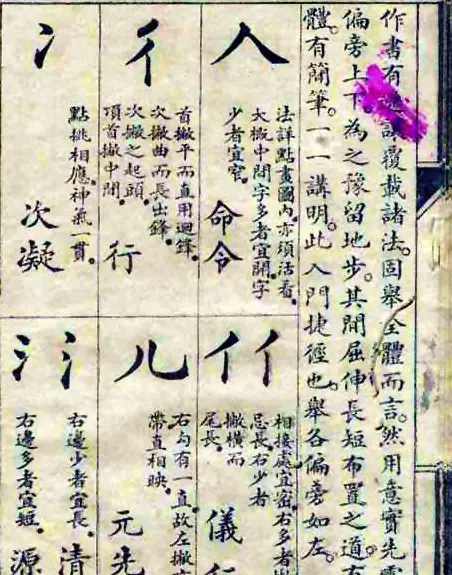 作書有讓覆載諸法。固舉全體而言。然用意實先
偏旁上下為之豫留地步。其間屈伸長短布置之道。
體。有簡筆。一一講明。此入門捷徑也。舉各偏旁如左。
人
法詳點畫圖內。亦須活看。
大概中間字多者宜開。字
少者宜窄。
命令
彳
首撇平而直用迴鋒。
次撇曲而長出鋒。
次撇之起頭。
項首撇中間。
行
冫
點挑相應。神氣一貫。
次凝
亻亻
相接處宜密。右多者
忌長。右少者
撇橫而
尾長。
儀行
儿
右勾有一直。故左撇
帶直相映。
元先
氵氵
右邊少者宜長。
清
右邊多者宜短。
源